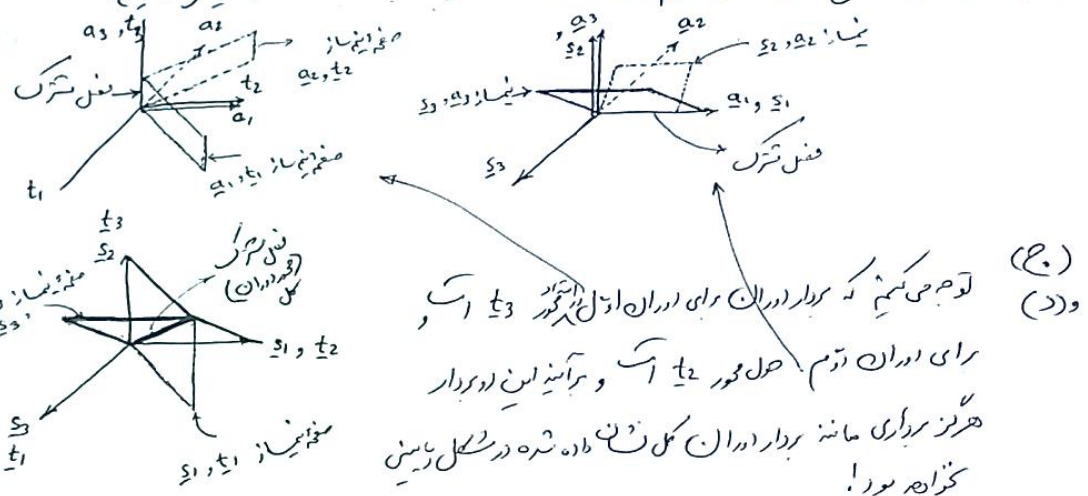 a₃ , t₃
a₂
صفحه نیمساز
a₂ , t₂
فصل مشترک
t₂
a₁
t₁
صفحه نیمساز a₁ , t₁
a₃
s₂
a₂
نیمساز s₂ , a₂
نیمساز s₃ , a₃
a₁ , s₁
فصل مشترک
s₃
t₃
s₂
فصل مشترک
(محور دوران)
کل
صفحه نیمساز
s₃
s₁ , t₂
s₃
t₁
صفحه نیمساز s₁ , t₁
(ج)
و(د)
توجه می‌کنیم که بردار دوران برای دوران اول در امتداد محور t₃ است و
برای دوران دوم حول محور t₂ است و برآیند این دو بردار
هرگز برداری مانند بردار دوران کل نشان داده شده در شکل پایینی
نخواهد بود!